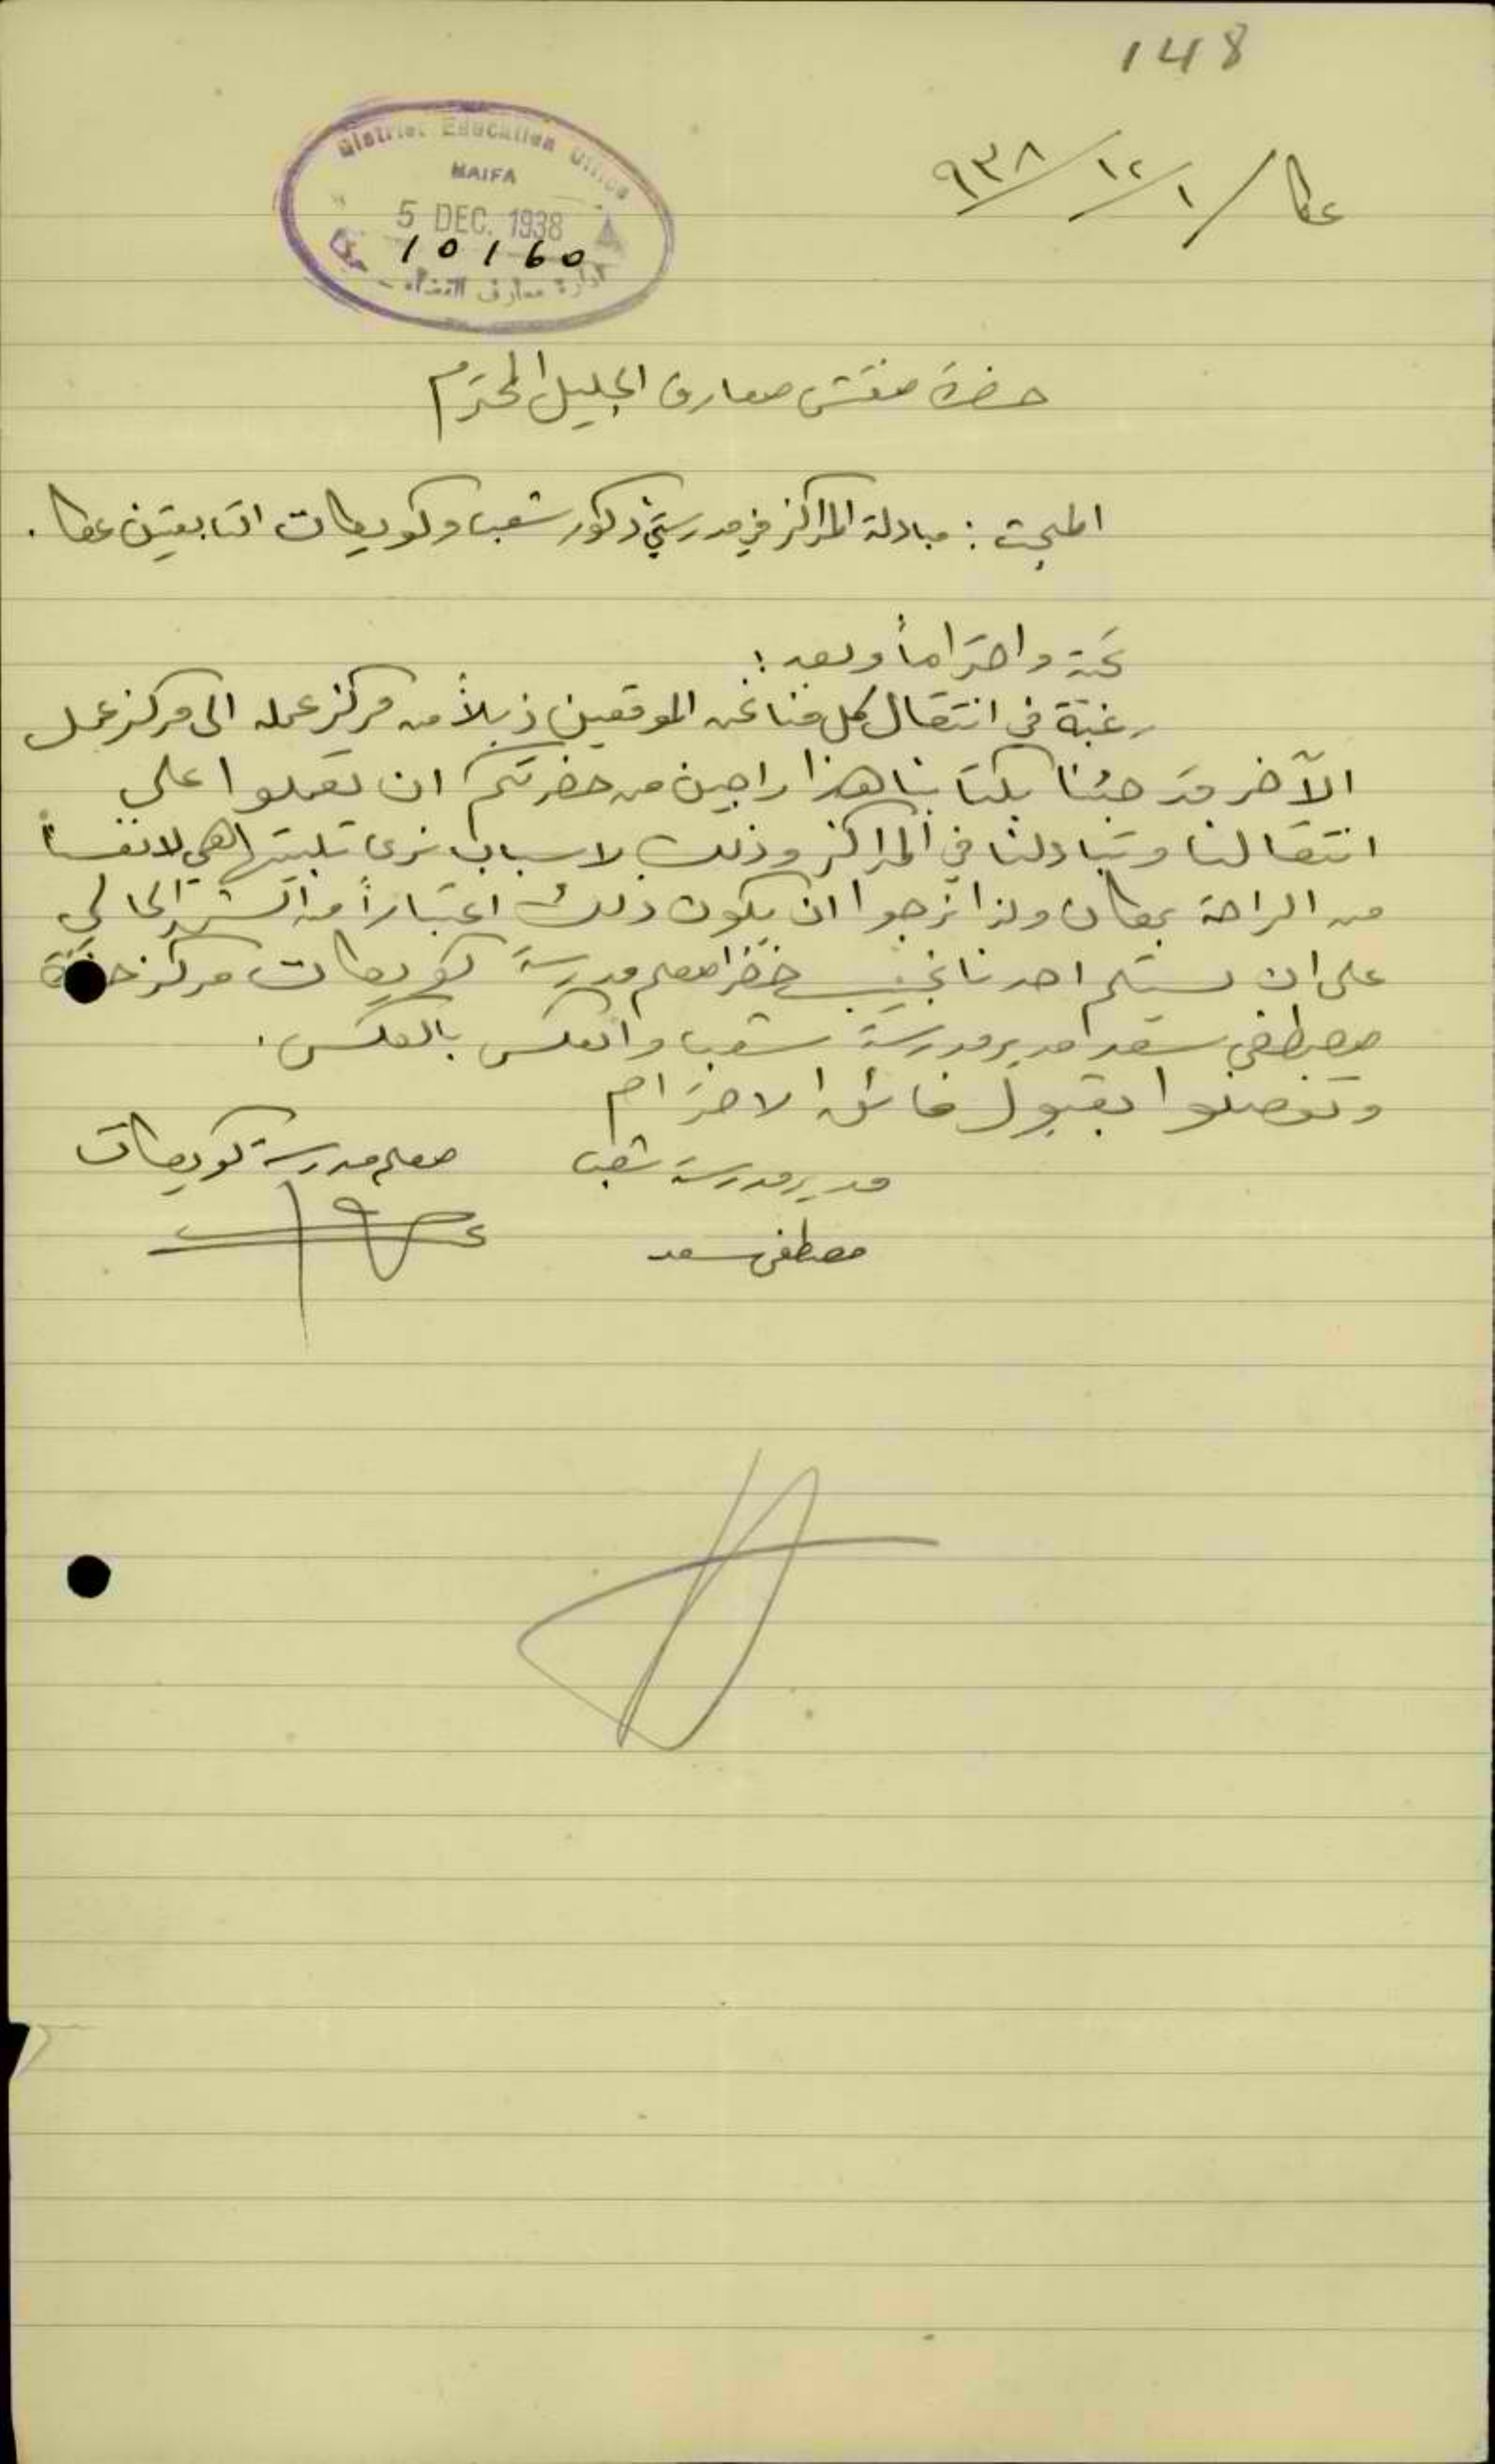 148
عكا / ١ / ١٢ / ٩٣٨
District Education Office
HAIFA
5 DEC. 1938
10160
ادارة معارف القضاء - حيفا
حضرة مفتش معارف الجليل المحترم
المبحث : مبادلة المراكز في مدرستي ذكور شعب وكويكات التابعتين عكا .
تحية واحتراماً وبعد :
رغبة في انتقال كل منا نحن الموقعين ذيلاً من مركز عمله الى مركز عمل
الآخر قد جئنا بكتابنا هذا راجين من حضرتكم ان تعملوا على
انتقالنا وتبادلنا في المراكز وذلك لاسباب نرى تلبيتها هي لانفسنا
من الراحة بمكان ولذا نرجوا ان يكون ذلك اعتباراً من الشهر الحالي
على ان يستلم احدنا نجيب خضرا معلم مدرسة كويكات مركز
مصطفى سعد مدير مدرسة شعب والعكس بالعكس .
وتفضلوا بقبول فائق الاحترام
مدير مدرسة شعب معلم مدرسة كويكات
مصطفى سعد